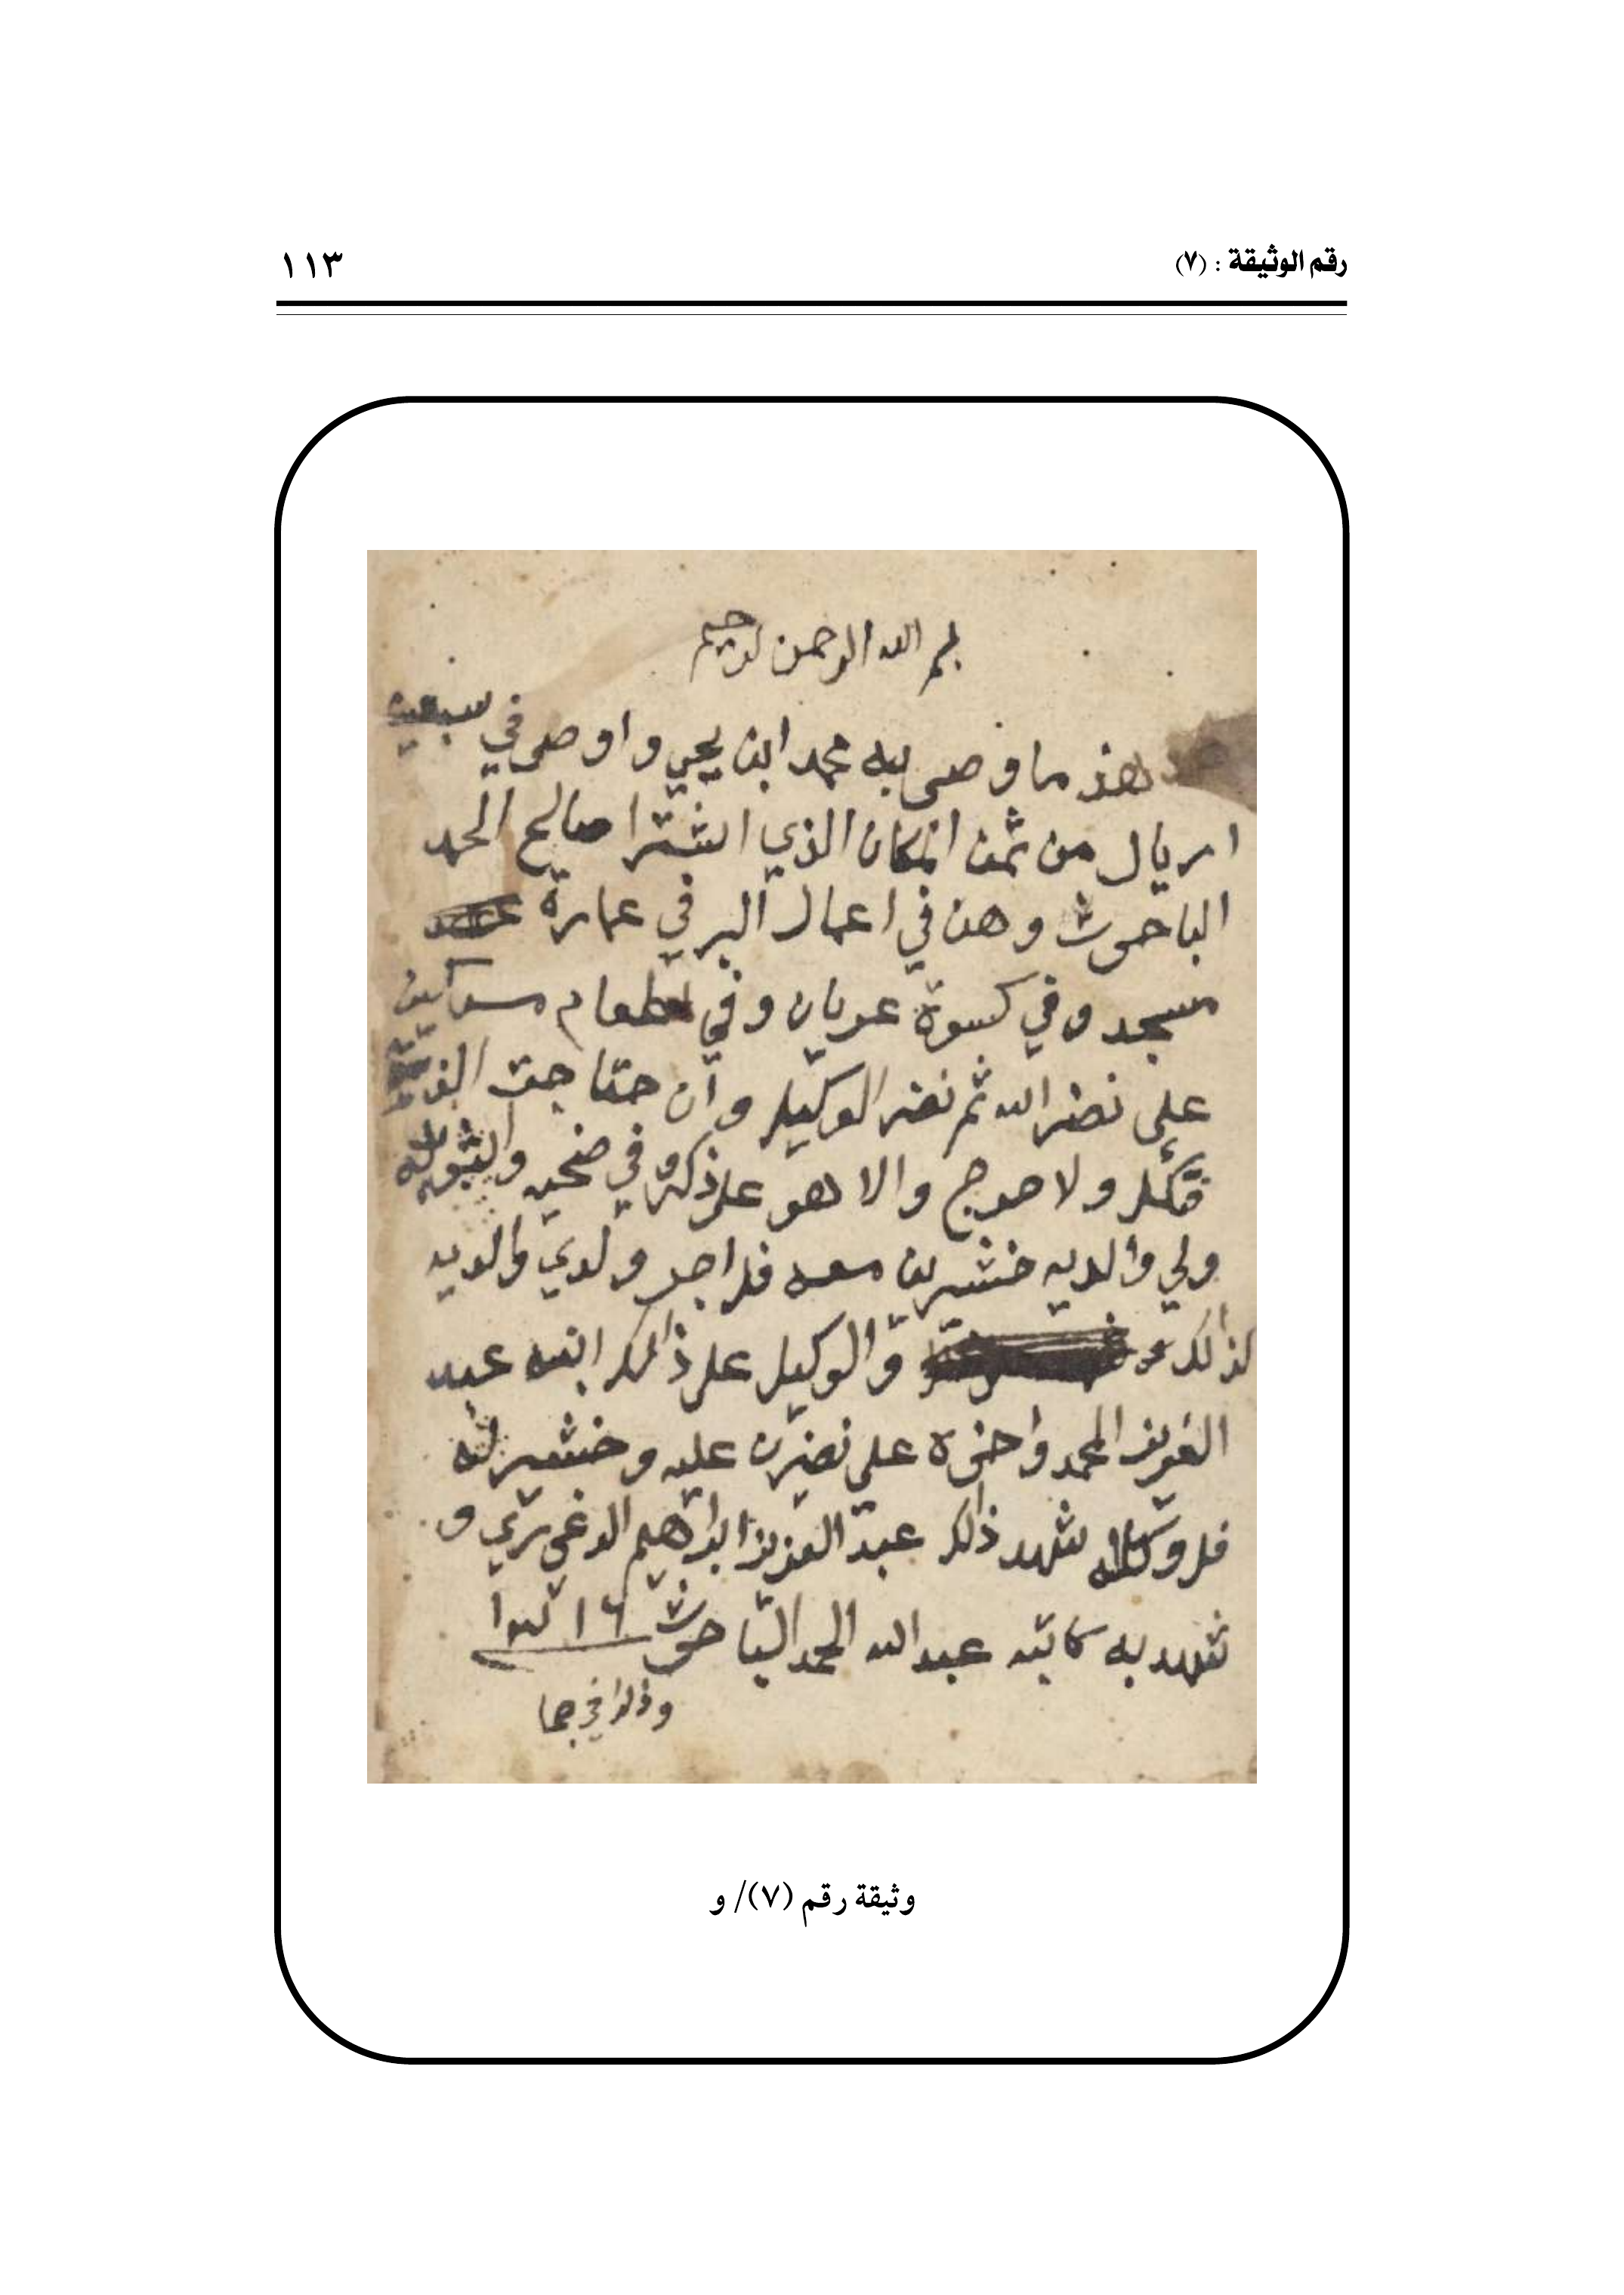 رقم الوثيقة : (٧)
١١٣
بسم الله الرحمن لرحيم
هذ ما وصى به محمد ابن يحيي واوصى في سبعين
اريال من ثمن المكان الذي اشترا صالح الحمد
الباحوث وهن في اعمال البر في عمارة
مسجد وفي كسوة عريان وفي اطعام مساكين
على نضر الله ثم نضر الوكيل وان حتاجت
ولا حوج والا هو على ذكره في ضحيه
ولي والديه خشيرين معه فلاجر ولدي والديه
لذالك والوكيل على ذالك ابنه عبد
العزيز المحمد واخوه على نضرن عليه وخشير له
فلروكاله شهد ذالك عبد العزيز ابراهيم الدغيري و
شهد به كاتبه عبد الله الحمد الباحوث ١٦
وذالك في جما
وثيقة رقم (٧)/ و